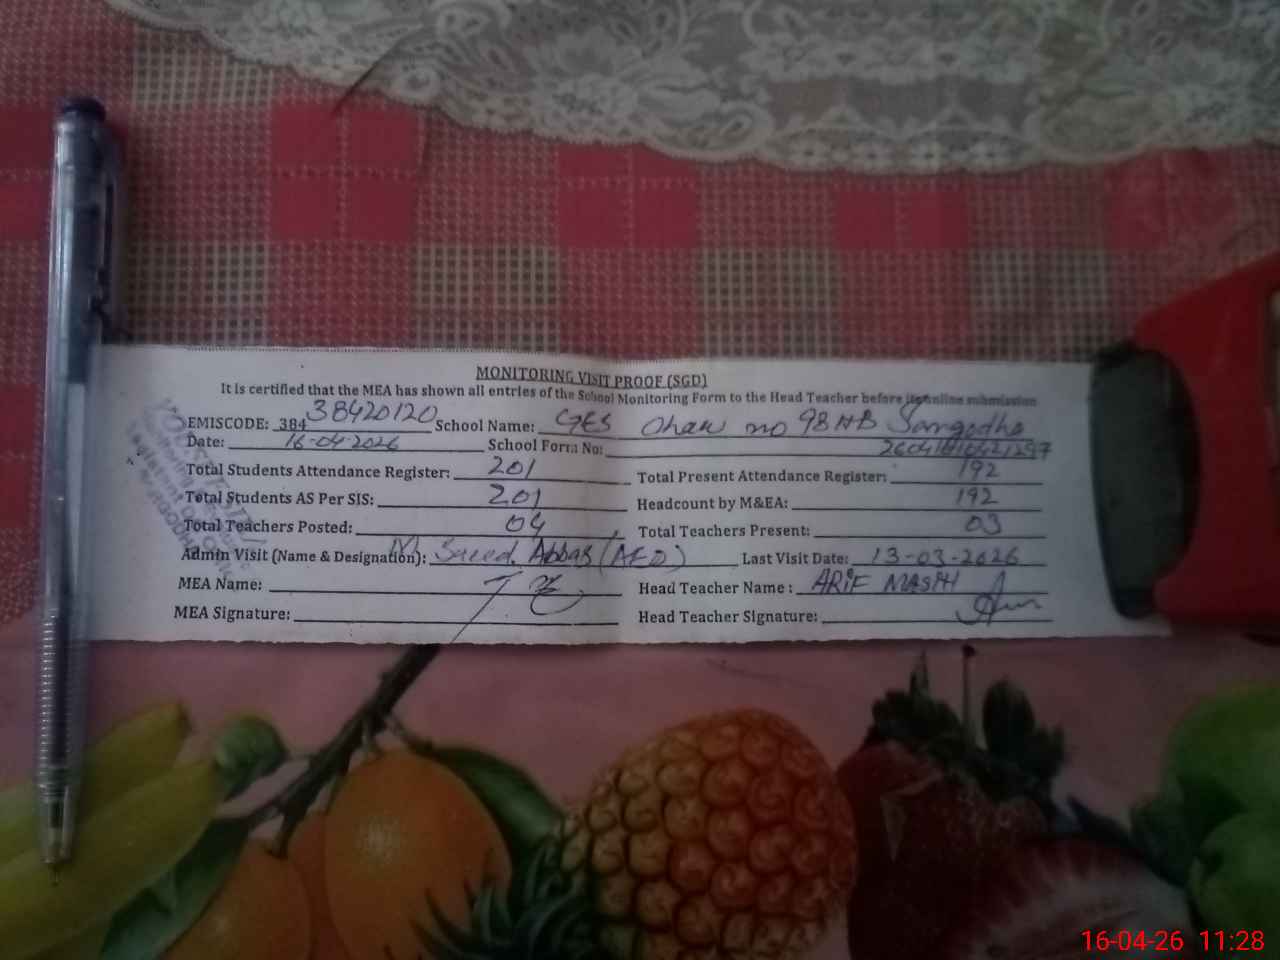 MONITORING VISIT PROOF (SGD)
It is certified that the MEA has shown all entries of the School Monitoring Form to the Head Teacher before its online submission
EMISCODE: 384 38420120 School Name: GES Chak no 98 NB Sargodha
Date: 16-04-2026 School Form No:
Total Students Attendance Register: 201 Total Present Attendance Register: 192
Total Students AS Per SIS: 201 Headcount by M&EA: 192
Total Teachers Posted: 04 Total Teachers Present: 03
Admin Visit (Name & Designation): Saeed Abbas (AEO) Last Visit Date: 13-03-2026
MEA Name: Head Teacher Name : ARIF MASIH
MEA Signature: Head Teacher Signature:
16-04-26 11:28